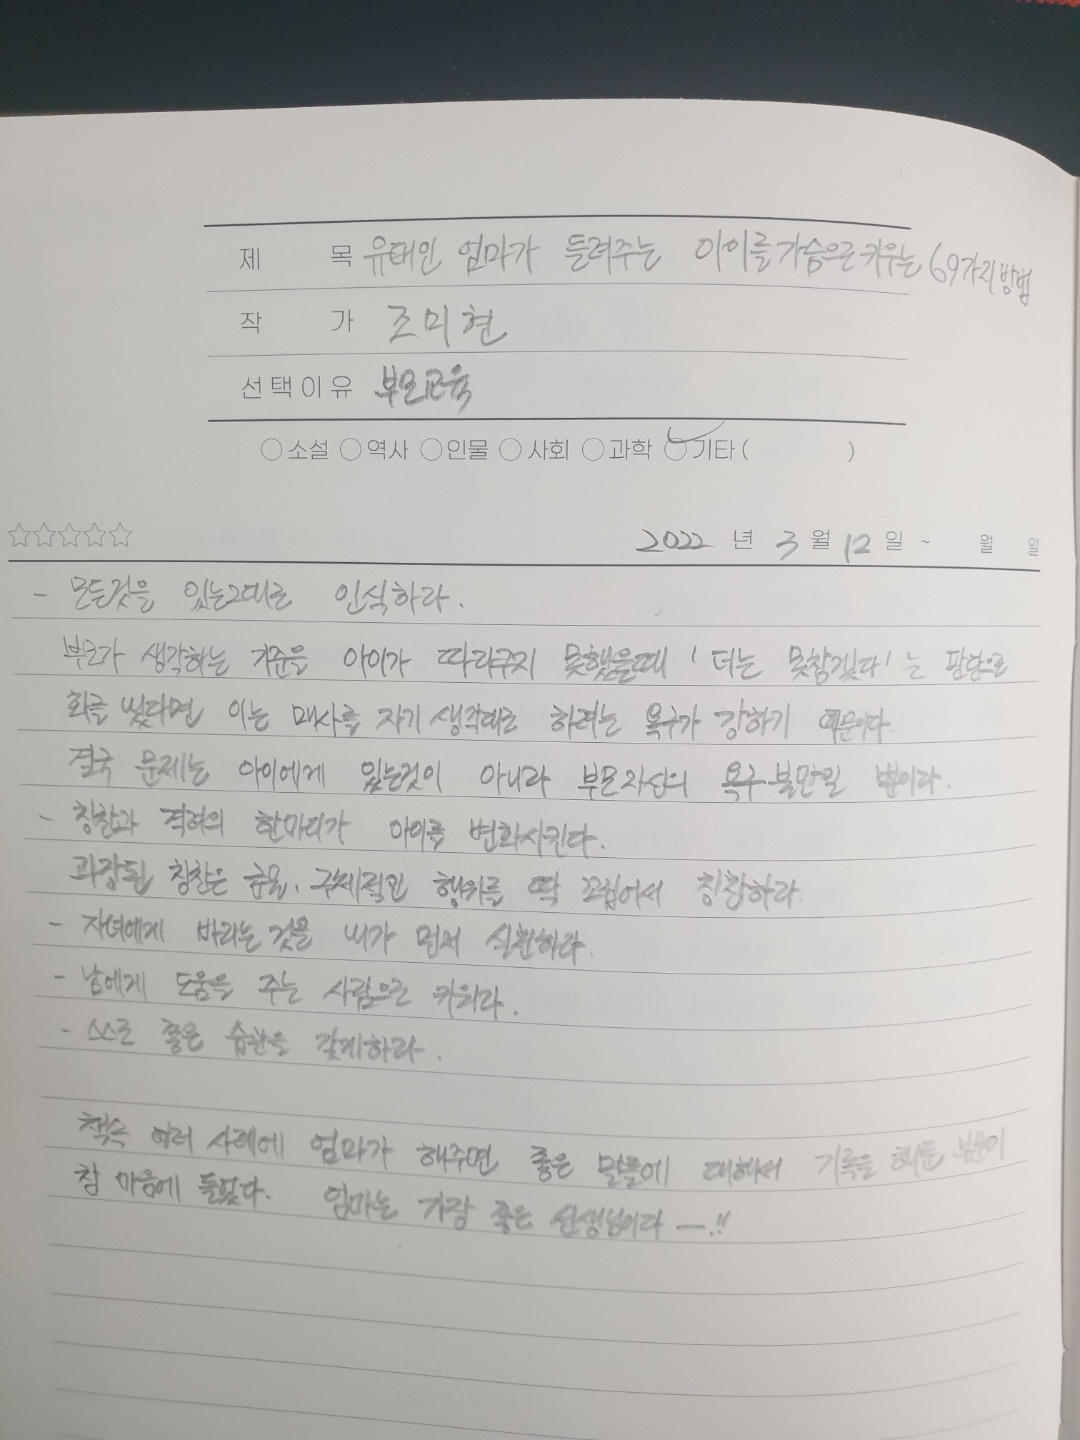 제 목 유태인 엄마가 들려주는 아이를 가슴으로 키우는 69가지 방법
작 가 조미현
선택이유 부모교육
○소설 ○역사 ○인물 ○사회 ○과학 ○기타( )
☆☆☆☆☆ 2022 년 3 월 12 일 ~ 월 일
- 모든것을 있는그대로 인식하라.
부모가 생각하는 기준을 아이가 따라주지 못했을때 '더는 못참겠다' 는 판단으로
화를 냈다면 이는 매사를 자기 생각대로 하려는 욕구가 강하기 때문이다.
결국 문제는 아이에게 있는것이 아니라 부모자신의 욕구불만일 뿐이다.
- 칭찬과 격려의 한마디가 아이를 변화시킨다.
과장된 칭찬은 금물, 구체적인 행위를 딱 꼬집어서 칭찬하라.
- 자녀에게 바라는 것을 내가 먼저 실천하라.
- 남에게 도움을 주는 사람으로 키워라.
- 스스로 좋은 습관을 갖게하라.
책속 여러 사례에 엄마가 해주면 좋은 말들에 대해서 기록을 해둔 부분이
참 마음에 들었다. 엄마는 가장 좋은 선생님이다 ㅡ.!!